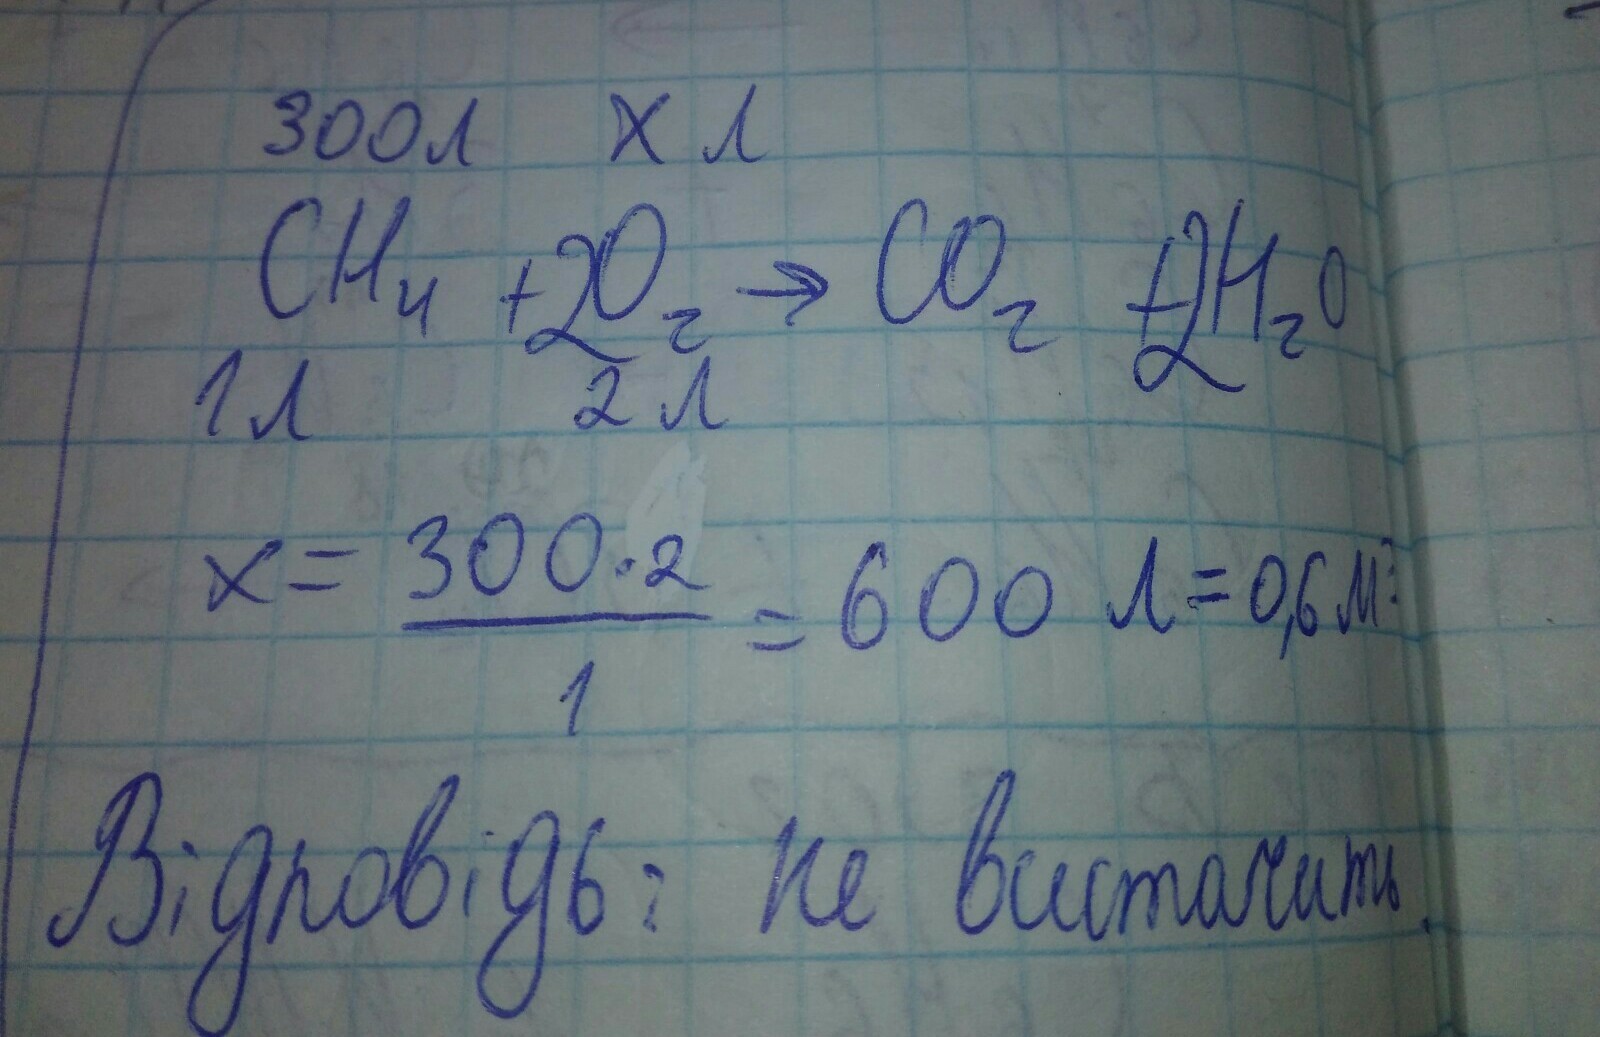 300л x л
CH₄ + 2O₂ → CO₂ + 2H₂O
1л 2л
x = 300·2 / 1 = 600 л = 0,6 м³
Відповідь: не вистачить.